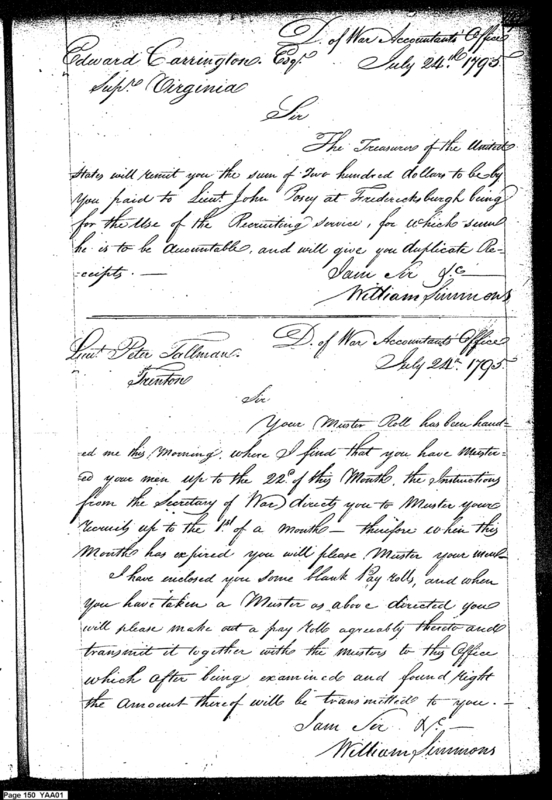 D. of War Accountants Office
Edward Carrington. Esqr. July 24.th 1795
Supr. Virginia
Sir
The Treasurer of the United
States will remit you the sum of Two hundred dollars to be by
you paid to Lieut. John Posey at Fredericksburgh being
for the Use of the Recruiting service, for which sum
he is to be Accountable, and will give you duplicate Re-
ceipts. —
I am Sir &c —
William Simmons
D. of War Accountants Office
Lieut. Peter Tallman. July 24th. 1795
Trenton
Sir
Your Muster Roll has been hand-
ed me this Morning, where I find that you have Muster-
ed your men up to the 22d of this Month, the Instructions
from the Secretary of War directs you to Muster your
recruits up to the 1st of a Month — therefore when this
Month has expired you will please Muster your men —
I have enclosed you some blank Pay rolls, and when
you have taken a Muster as above directed you
will please make out a pay roll agreeably thereto and
transmit it together with the musters to this Office
which after being examined and found right
the Amount thereof will be transmitted to you. —
I am Sir &c —
William Simmons
Page 150 YAA01